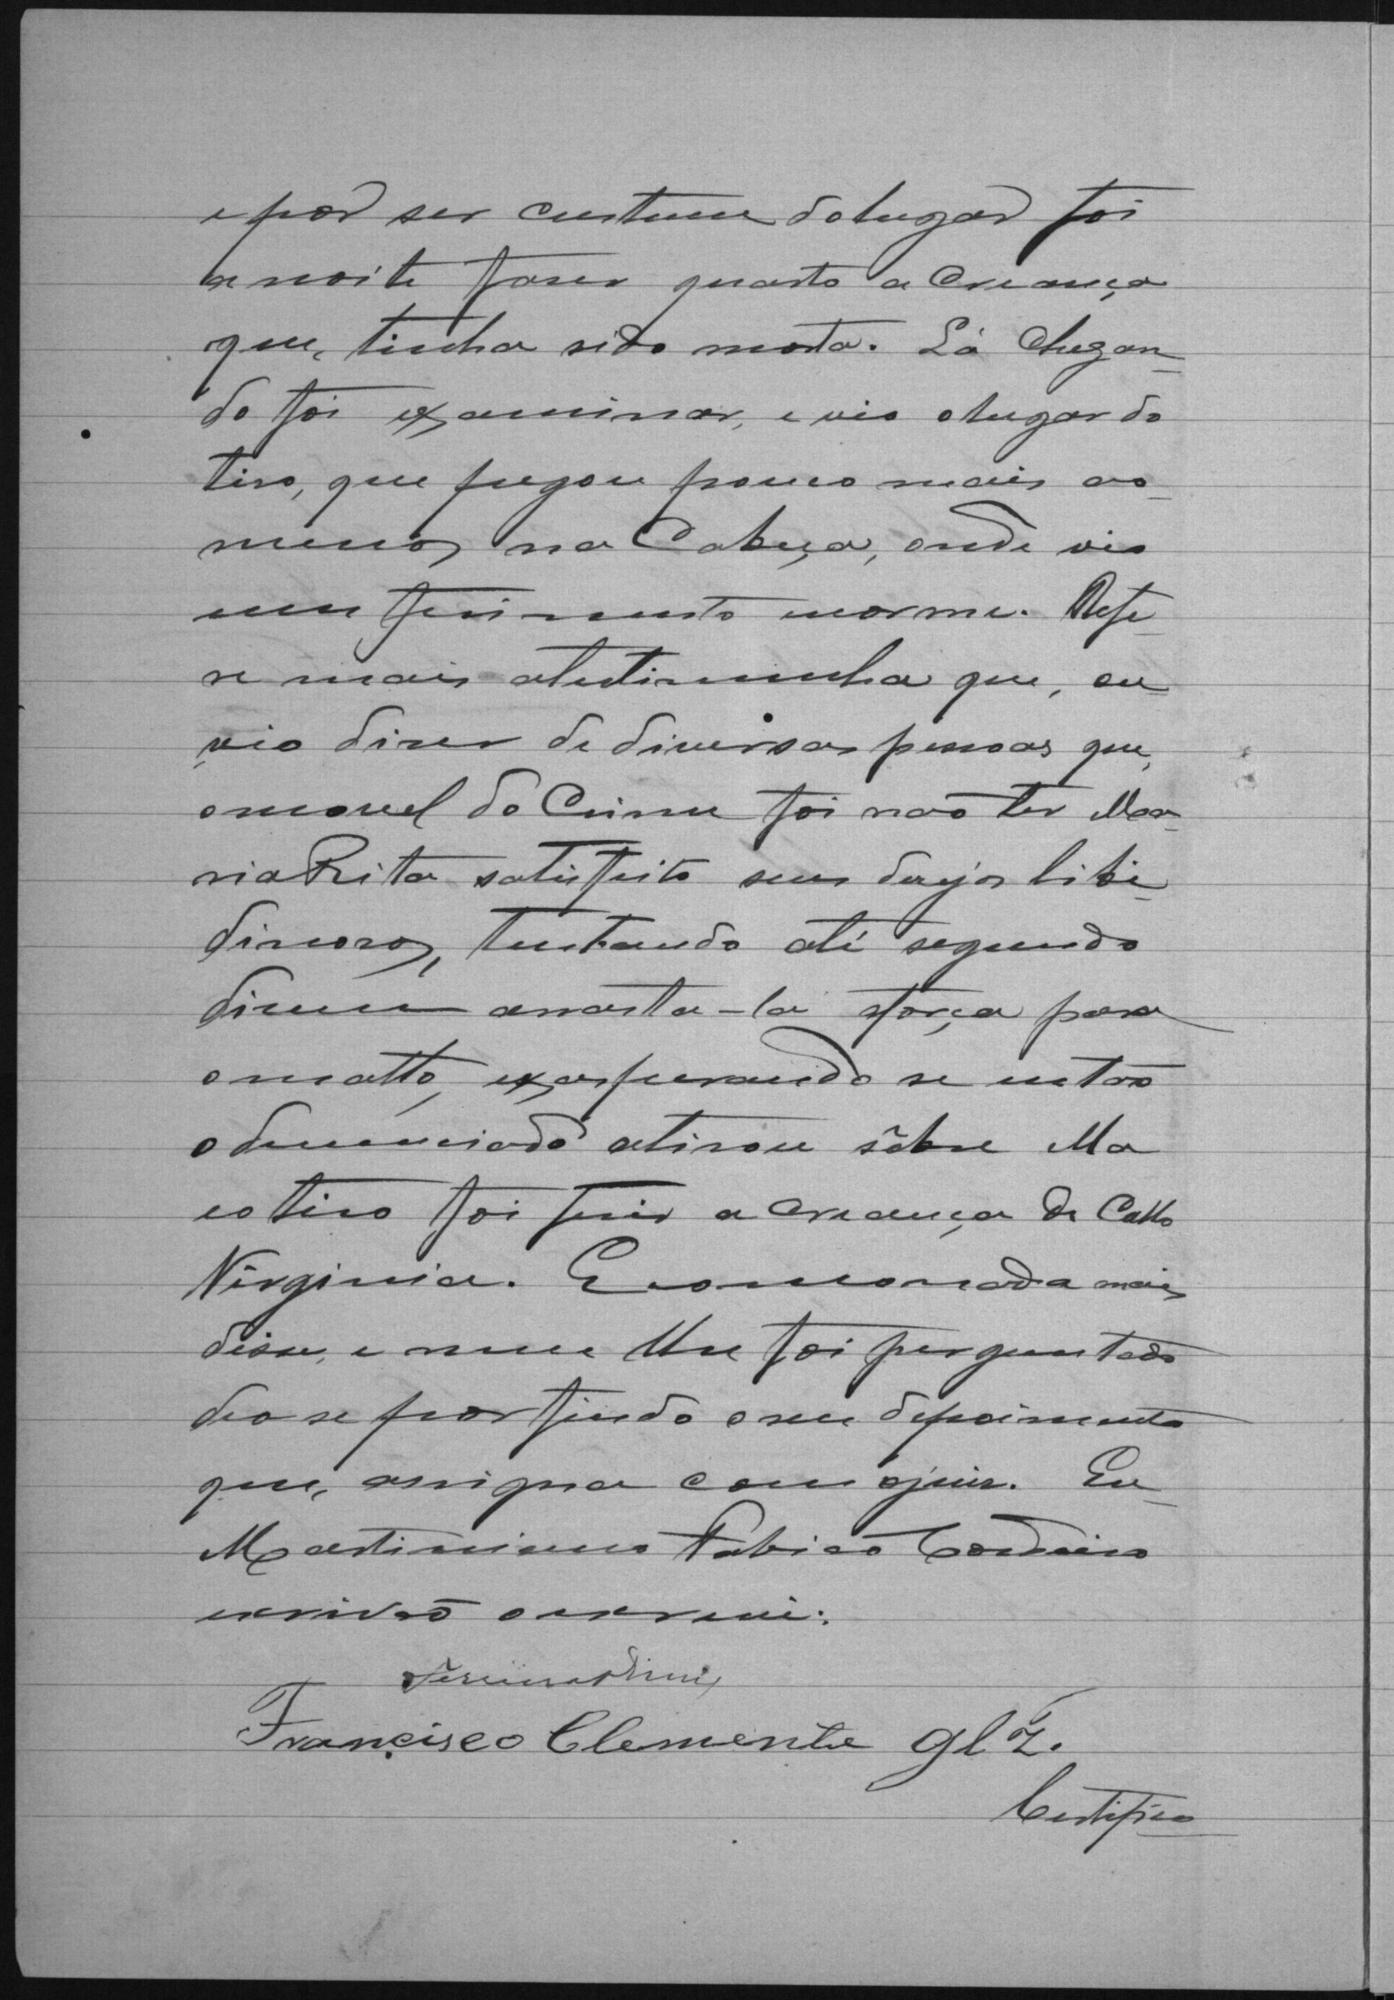 e por ser custume do lugar foi
a noite faser quarto a creança
que, tinha sido morta. Lá chegan-
do foi examinar, e vio o lugar do
tiro, que pegou pouco mais ao-
menos na Cabeça, onde vio
um ferimento enorme. Refe-
re mais a testimunha que, ou-
vio diser de diversas pessoas que,
o movel do Crime foi não ter Ma-
ria Rita satisfeito seus desejos libi-
dinosos, tentando até segundo
disem arrasta-la a força para
o matto, exasperando se então
o denunciado atirou sôbre Ma
e o tiro foi ferir a creança de Collo
Virginia. E como nada mais
disse, e nem lhe foi perguntado
deo se por findo o seu depoimento
que, assigna com o juis. Eu
Martiniano Fabião Cordeiro
escrivão o escrevi:
Francisco Clemente
Certifico